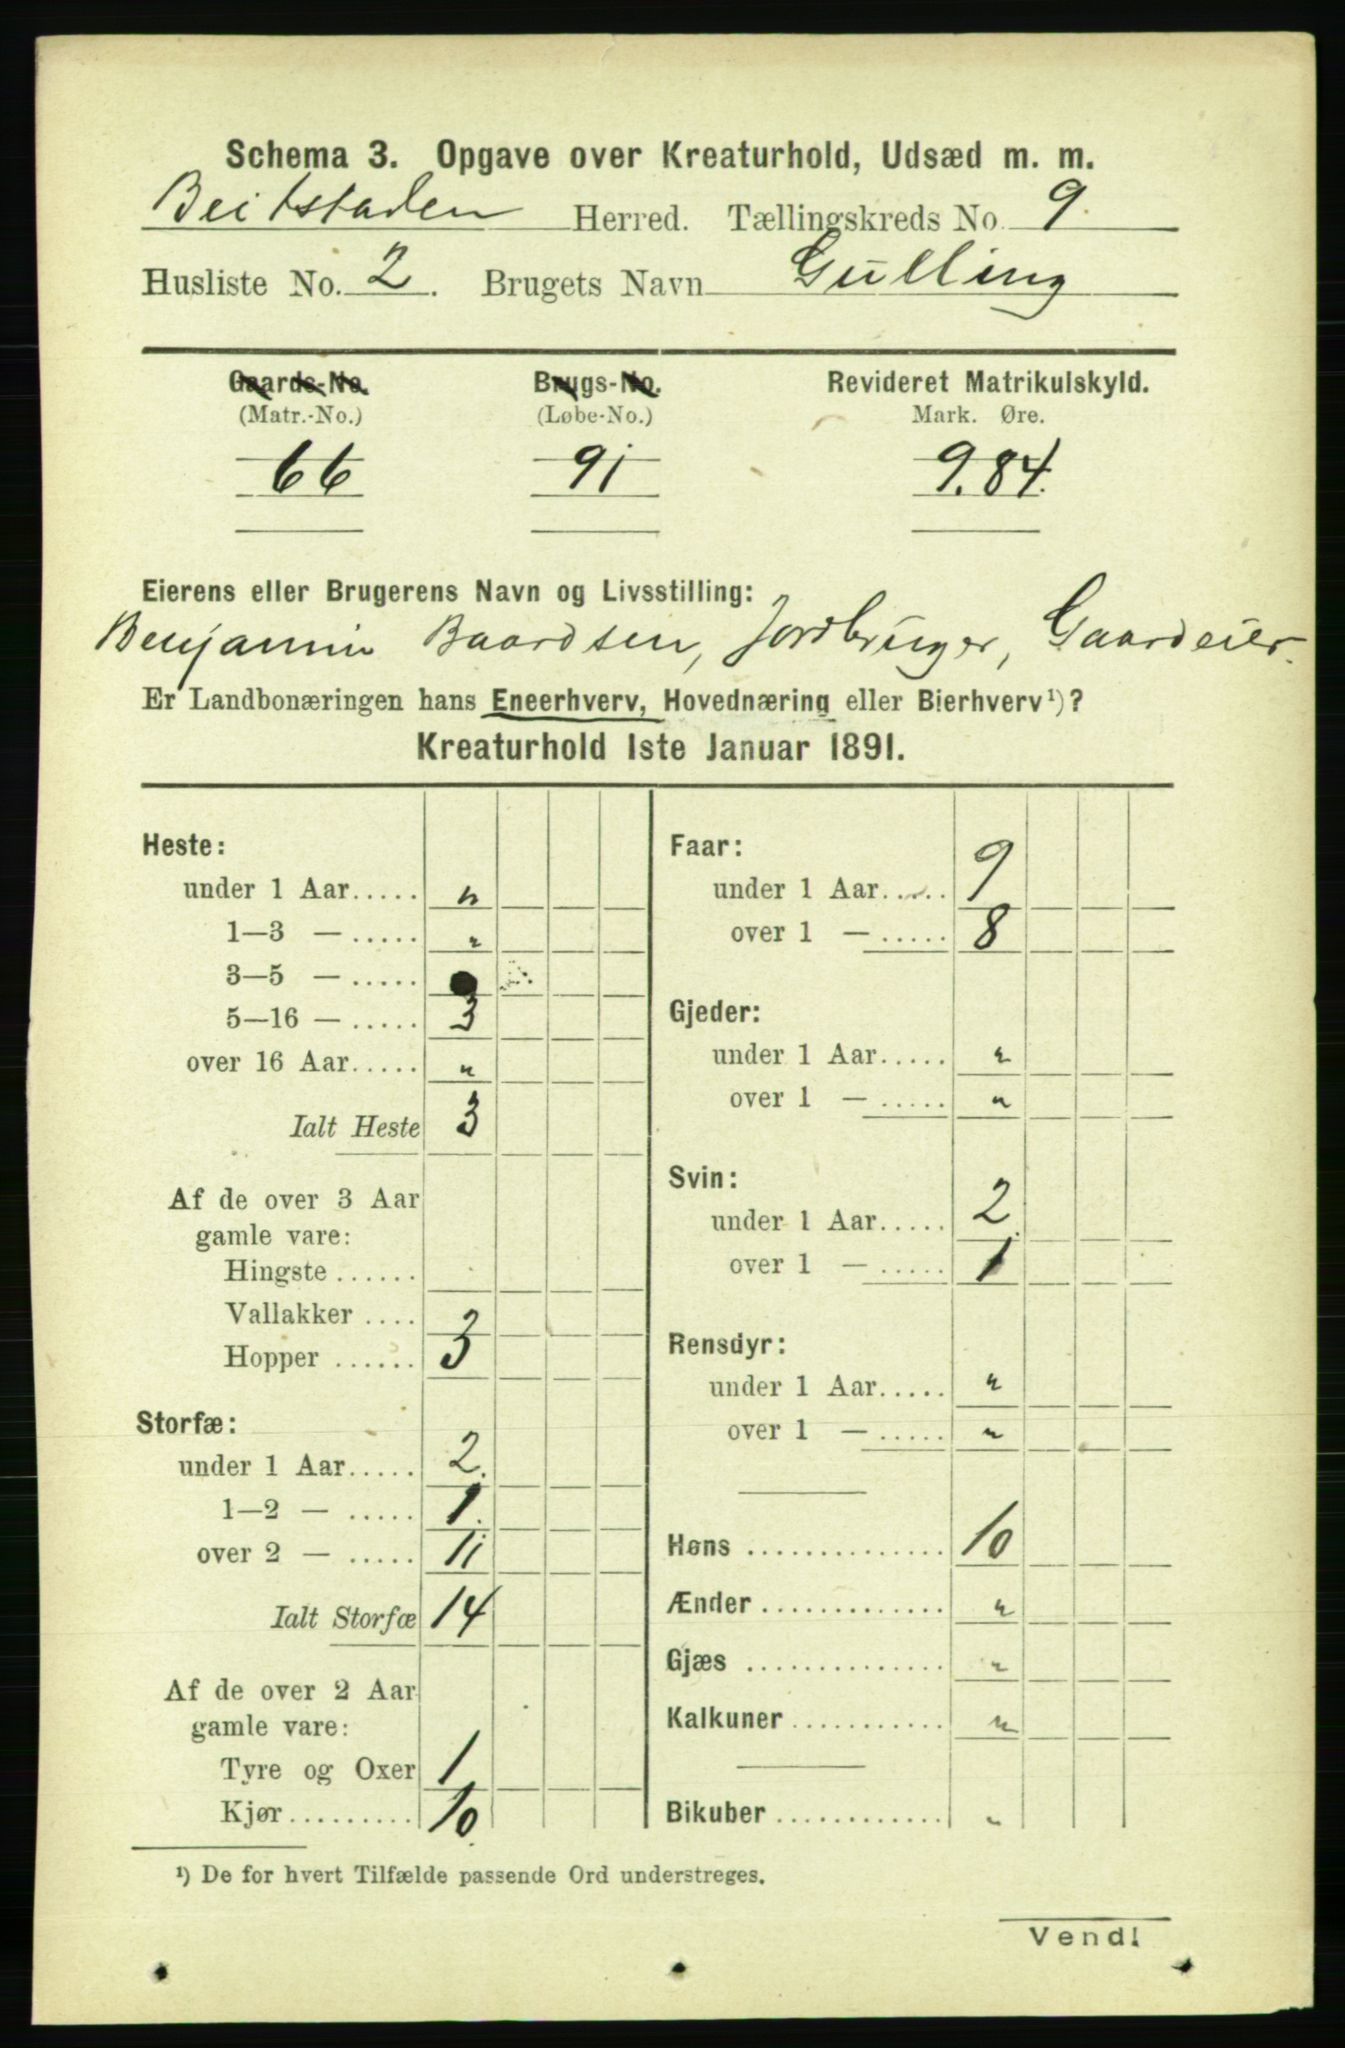 Schema 3. Opgave over Kreaturhold, Udsæd m. m.
Beitstaden Herred. Tællingskreds No. 9.
Husliste No. 2. Brugets Navn Gulling
Gaards-No. Brugs-No. Revideret Matrikulskyld.
(Matr.-No.) (Løbe-No.) Mark. Øre.
66 91 9.84.
Eierens eller Brugerens Navn og Livsstilling:
Benjamin Baardsen, Jordbruger, Gaardeier.
Er Landbonæringen hans Eneerhverv, Hovednæring eller Bierhverv ¹)?
Kreaturhold 1ste Januar 1891.
Heste:
under 1 Aar..... "
1—3 — ..... "
3—5 — .....
5—16 — ..... 3
over 16 Aar..... "
Ialt Heste 3
Af de over 3 Aar
gamle vare:
Hingste ......
Vallakker ....
Hopper ...... 3
Storfæ:
under 1 Aar..... 2.
1—2 — ..... 1.
over 2 — ..... 11
Ialt Storfæ 14
Af de over 2 Aar
gamle vare:
Tyre og Oxer 1
Kjør.......... 10.
Faar:
under 1 Aar..... 9
over 1 — ..... 8
Gjeder:
under 1 Aar..... "
over 1 — ..... "
Svin:
under 1 Aar..... 2.
over 1 — ..... 1
Rensdyr:
under 1 Aar..... "
over 1 — ..... "
Høns .............. 10
Ænder ............. "
Gjæs .............. "
Kalkuner ........... "
Bikuber ............ "
¹) De for hvert Tilfælde passende Ord understreges.
Vend!